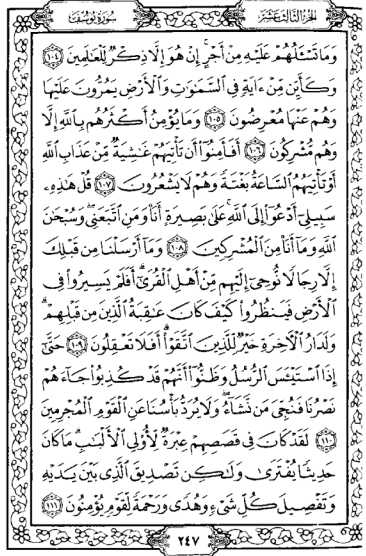 الجزء الثالث عشر سورة يوسف
وَمَا تَسْـَٔلُهُمْ عَلَيْهِ مِنْ أَجْرٍ ۚ إِنْ هُوَ إِلَّا ذِكْرٌ لِّلْعَـٰلَمِينَ ١٠٤
وَكَأَيِّن مِّنْ ءَايَةٍ فِى ٱلسَّمَـٰوَٰتِ وَٱلْأَرْضِ يَمُرُّونَ عَلَيْهَا
وَهُمْ عَنْهَا مُعْرِضُونَ ١٠٥ وَمَا يُؤْمِنُ أَكْثَرُهُم بِٱللَّهِ إِلَّا
وَهُم مُّشْرِكُونَ ١٠٦ أَفَأَمِنُوٓا۟ أَن تَأْتِيَهُمْ غَـٰشِيَةٌ مِّنْ عَذَابِ ٱللَّهِ
أَوْ تَأْتِيَهُمُ ٱلسَّاعَةُ بَغْتَةً وَهُمْ لَا يَشْعُرُونَ ١٠٧ قُلْ هَـٰذِهِۦ
سَبِيلِىٓ أَدْعُوٓا۟ إِلَى ٱللَّهِ ۚ عَلَىٰ بَصِيرَةٍ أَنَا۠ وَمَنِ ٱتَّبَعَنِى ۖ وَسُبْحَـٰنَ
ٱللَّهِ وَمَآ أَنَا۠ مِنَ ٱلْمُشْرِكِينَ ١٠٨ وَمَآ أَرْسَلْنَا مِن قَبْلِكَ
إِلَّا رِجَالًا نُّوحِىٓ إِلَيْهِم مِّنْ أَهْلِ ٱلْقُرَىٰٓ ۗ أَفَلَمْ يَسِيرُوا۟ فِى
ٱلْأَرْضِ فَيَنظُرُوا۟ كَيْفَ كَانَ عَـٰقِبَةُ ٱلَّذِينَ مِن قَبْلِهِمْ ۗ
وَلَدَارُ ٱلْـَٔاخِرَةِ خَيْرٌ لِّلَّذِينَ ٱتَّقَوْا۟ ۗ أَفَلَا تَعْقِلُونَ ١٠٩ حَتَّىٰٓ
إِذَا ٱسْتَيْـَٔسَ ٱلرُّسُلُ وَظَنُّوٓا۟ أَنَّهُمْ قَدْ كُذِبُوا۟ جَآءَهُمْ
نَصْرُنَا فَنُجِّىَ مَن نَّشَآءُ ۖ وَلَا يُرَدُّ بَأْسُنَا عَنِ ٱلْقَوْمِ ٱلْمُجْرِمِينَ
١١٠ لَقَدْ كَانَ فِى قَصَصِهِمْ عِبْرَةٌ لِّأُو۟لِى ٱلْأَلْبَـٰبِ ۗ مَا كَانَ
حَدِيثًا يُفْتَرَىٰ وَلَـٰكِن تَصْدِيقَ ٱلَّذِى بَيْنَ يَدَيْهِ
وَتَفْصِيلَ كُلِّ شَىْءٍ وَهُدًى وَرَحْمَةً لِّقَوْمٍ يُؤْمِنُونَ ١١١
٢٤٧